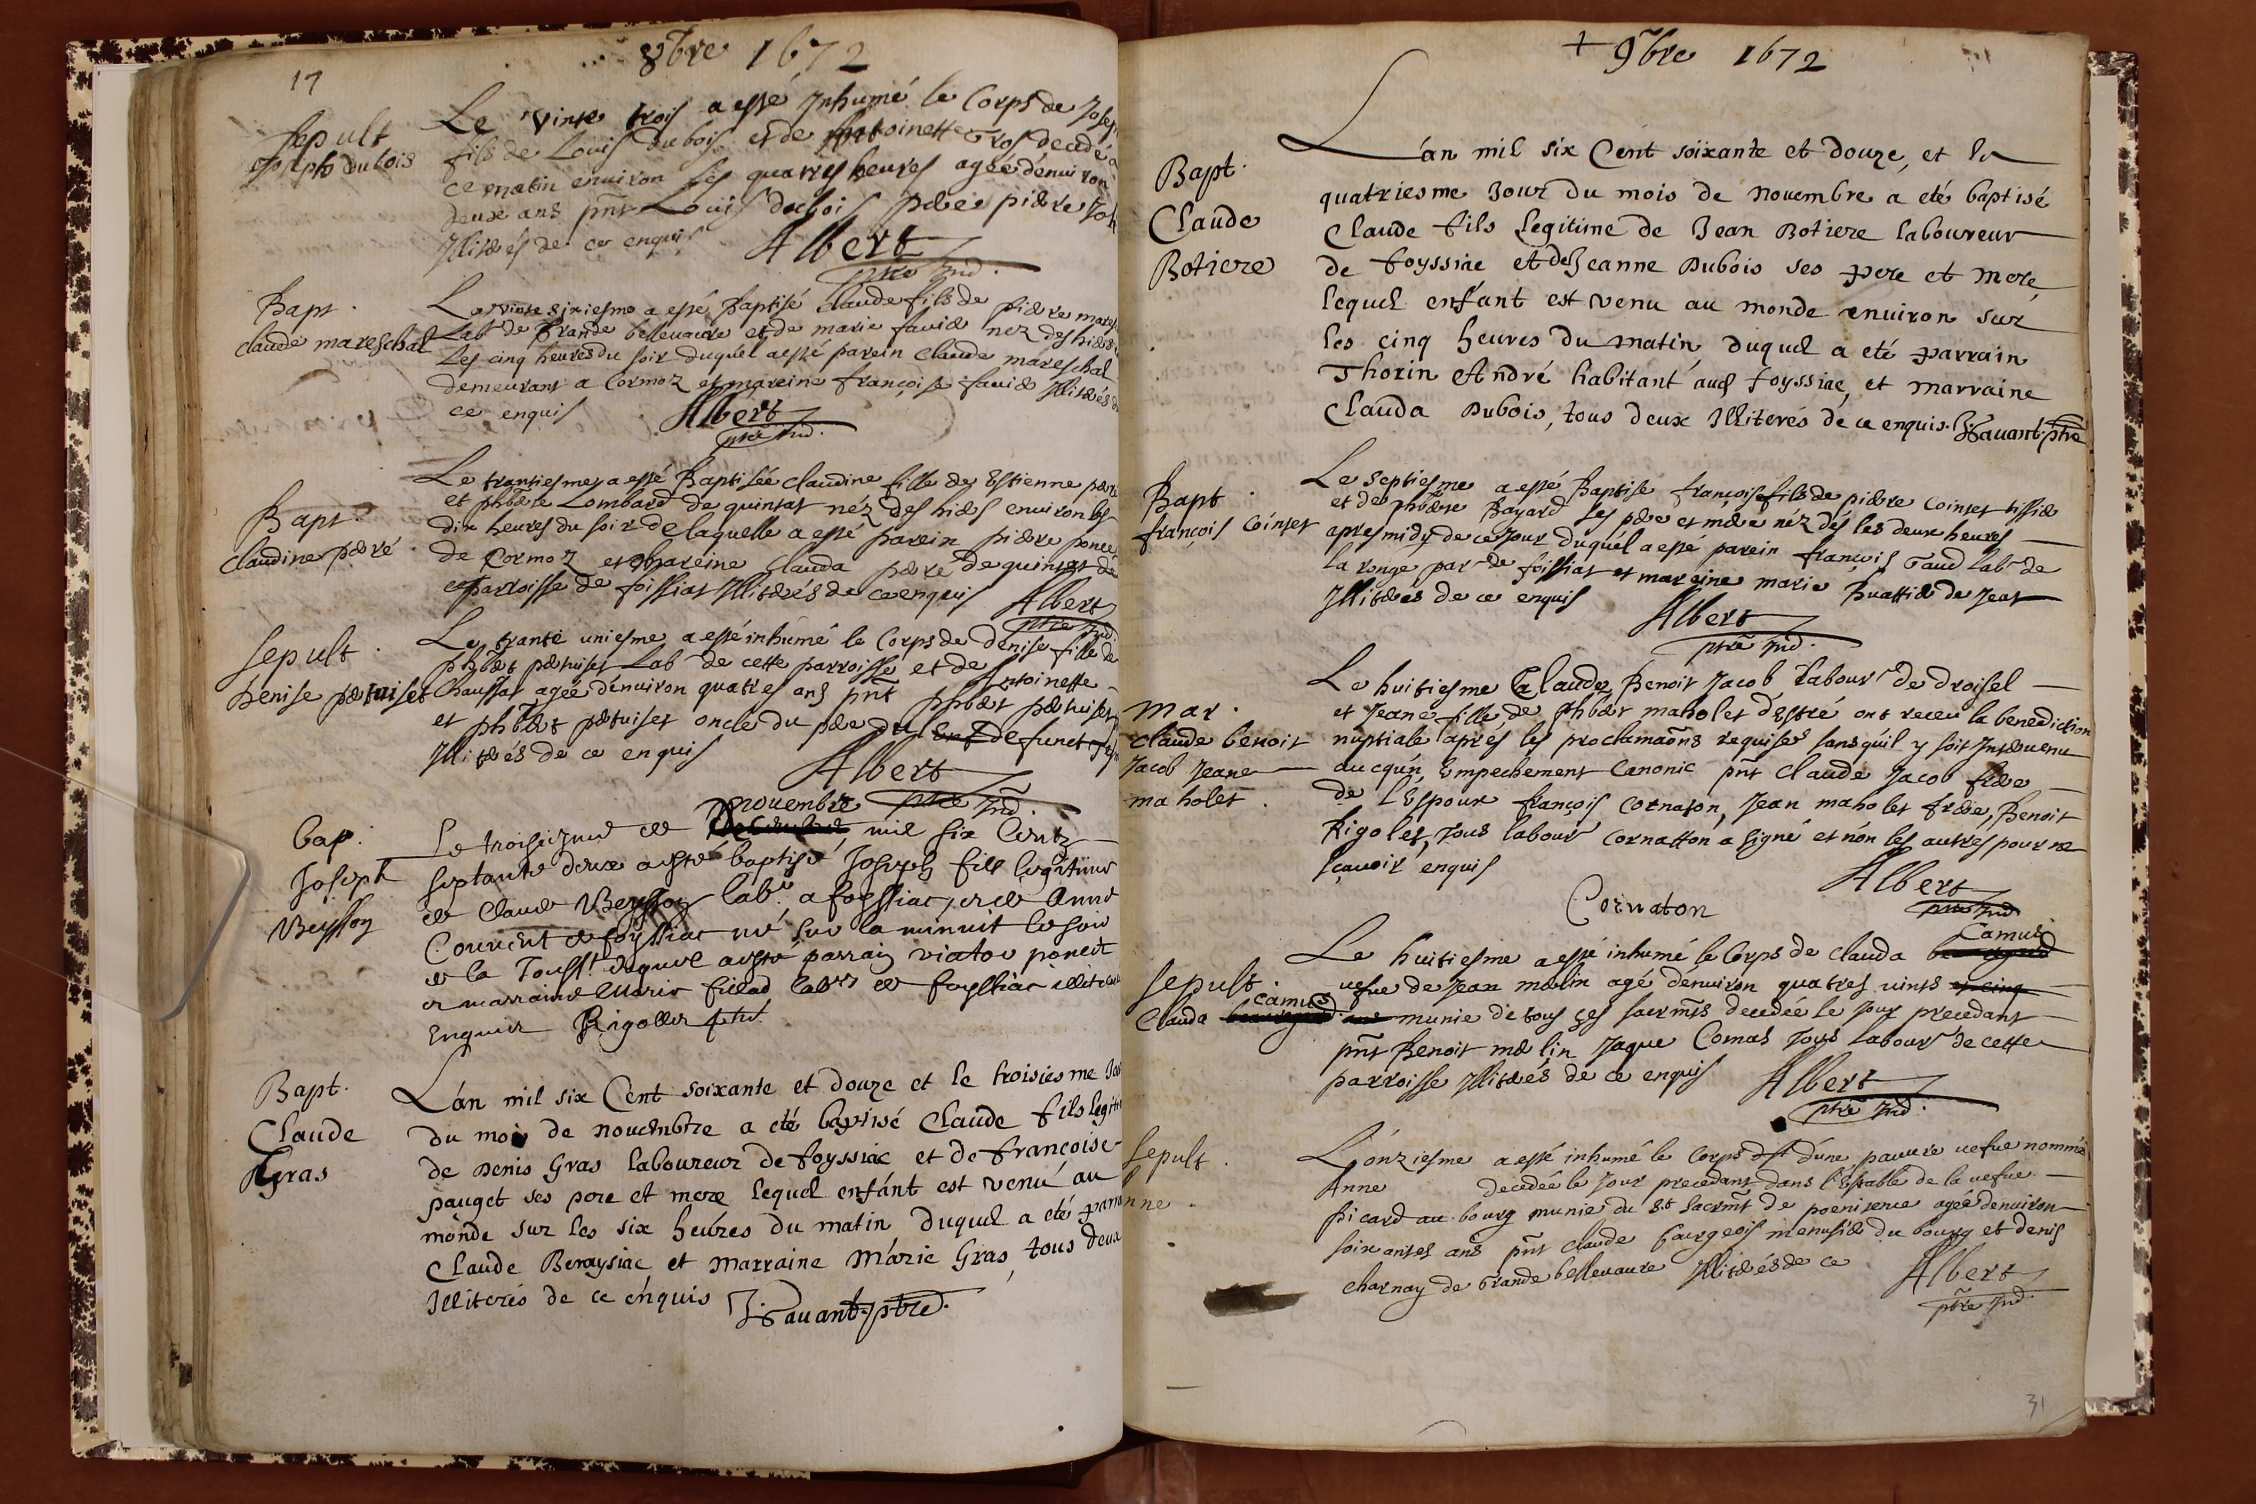 8bre 1672
17
Sepult
Joseph dubois
Le vinte trois a essé Inhumé le Corps de Josep
fils de Louis dubois et de Antoinette Gros decedé
ce matin enuiron les quatres heures agée d'enuiron
deux ans pnt Louis dubois pere piere
Illiterés de ce enquis Albert
ptre Ind.
Bapt.
claude mareschal
Le vinte sixiesme a essé Baptisé Claude fils de piere mares
Lab.r de Grande belleuavre et de marie fauier nez des hiers
Les cinq heures du soir duquel a essé parein claude mareschal
demeurant a Cormoz et mareine françoise fauier Illiterés de
ce enquis Albert
ptre Ind.
Bapt.
Claudine peré
Le trantiesme a essé Baptisée claudine fille de Estienne pere
et phberte Lombard de quintat néz des hiers enuiron les
dix heures du soir de laquelle a essé parein piere poncet
de Cormoz et Mareine Clauda peré de quintat de
ce parroisse de foissiat Illiterés de ce enquis Albert
ptre Ind.
Sepult.
Denise pertuiset
Le trante uniesme a essé inhumé le Corps de denise fille de
phbert pertuiset Lab.r de cette parroisse et de Antoinette
Chaussat agée d'enuiron quatres ans pnt phbert pertuiset
et phbert pertuiset oncle du pere du defunct
Illiterés de ce enquis Albert
ptre Ind.
bap.
Joseph
Beysson
nouembre
Le troisiezme de mil six Centz
septante deux a esté baptisé Joseph fils legitime
de Claude Beysson lab.r a foyssiac, et de Anne
Couuent de foyssiac né sur la minuit le soir
de la Touss.t duquel a esté parrain viator poncet
et marraine Marie fillod lab.rs de foyssiac illiteres
Enquis Rigollet ptre
Bapt.
Claude
Gras
L'an mil six Cent soixante et douze et le troisiesme Jour
du mois de nouembre a eté baptisé Claude fils legiti
de Denis Gras laboureur de foyssiac et de françoise
pauget ses pere et mere lequel enfant est venu au
monde sur les six heures du matin duquel a eté parra
Claude Beraysiac et marraine Marie Gras, tous deux
Illiterés de ce enquis J. Sauant ptre.
+ 9bre 1672
Bapt.
Claude
Botiere
L'an mil six Cent soixante et douze, et le
quatriesme Jour du mois de nouembre a eté baptisé
Claude fils legitime de Jean Botiere laboureur
de foyssiac et de Jeanne Dubois ses pere et mere,
lequel enfant est venu au monde enuiron sur
les cinq heures du matin duquel a eté parrain
Thorin André habitant aud foyssiac, et marraine
Clauda Dubois, tous deux Illiterés de ce enquis. J. Sauant ptre
Bapt.
françois Cointet
Le septiesme a essé Baptisé françois fils de piere cointet tissie
et de phberte Bayard ses pere et mere néz dés les deux heures
apres midy de ce Jour duquel a essé parein françois Gaud Lab.r de
la ronge par.r de foissiat et mareine marie Buattier de Jeat
Illiterés de ce enquis Albert
ptre Ind.
Mar.
Claude benoit
Jacob Jeane
maholet.
Le huitiesme Claude, Benoit Jacob labour.r de droisel
et Jeane fille de phbert maholet d'Estré ont receu la benediction
nuptiale aprés les proclamaons requises sans qu'il y soit Interuenu
aucqu'un Empechement Canonic pnt claude Jacob frere
de l'Espoux françois Cornaton, Jean maholet frere, Benoit
Rigolet, tous labour.r Cornatton a signé et non les autres pour ne
sçauoir enquis Albert
Cornaton ptre Ind
Sepult.
camus
Clauda
Camus
Le huitiesme a essé inhumé le Corps de Clauda
uefue de Jean merlin agé d'enuiron quatres uints
munie de tous ses sacrmts decedée le Jour precedant
pnt Benoit merlin Jaque Comas tous labour.r de cette
parroisse Illiterés de ce enquis Albert
ptre Ind.
Sepult.
nne.
L'ónziesme a essé inhumé le Corps d'une pauure uefue nommée
Anne decedée le Jour precedant dans l'Estable de la uefue
Picard au bourg munie du st sacrmt de poenitence agée d'enuiron
soixantes ans pnt claude bourgeois menusier du bourg et denis
charnay de Grande belleuavre Illiterés de ce Albert
ptre Ind.
31